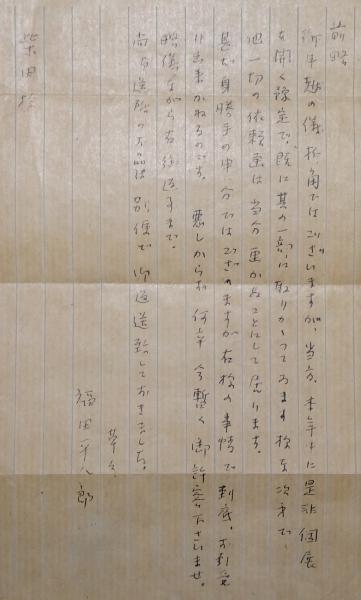 前略
御手越の儀 折角ではございますが、当方、本年中に是非個展
を開く予定で、既に其の一部に取りかゝつてゐます様な次第で、
他一切の依頼画は当分画かぬことにして居ります。
甚だ身勝手の申分ではございますが右様の事情で到底、お引受
け出来かねるのです。悪しからず何卒今暫く御許容下さいませ。
略儀ながら右御返事まで。
尚御送附の方品は別便で御返送致しておきました。
草々
福田平八郎
柴田様